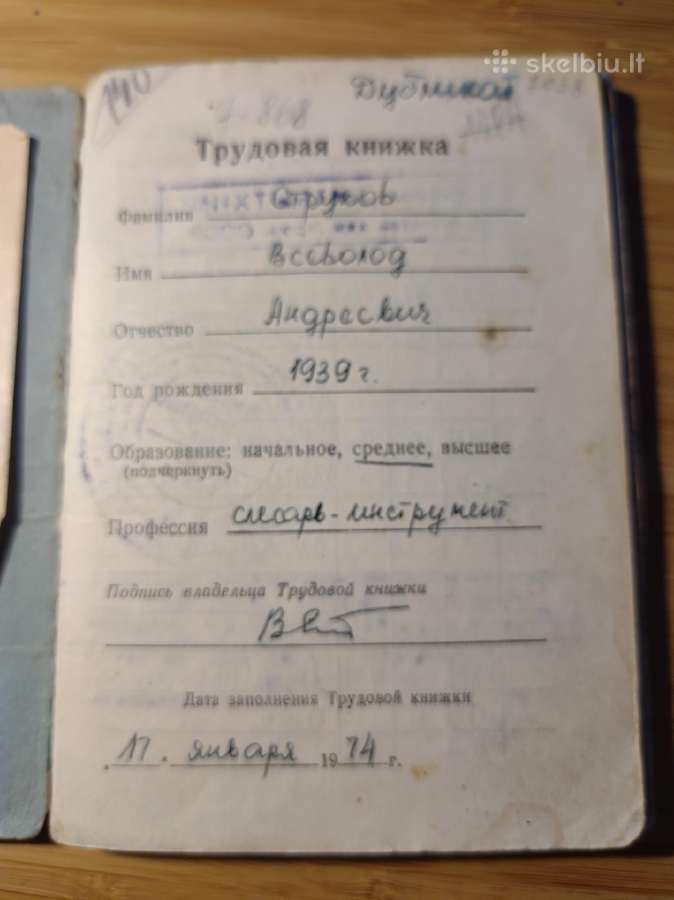 140
skelbiu.lt
Трудовая книжка
Фамилия Струков
Имя Всеволод
Отчество Андреевич
Год рождения 1939 г.
Образование: начальное, среднее, высшее
(подчеркнуть)
Профессия слесарь-инструмент.
Подпись владельца Трудовой книжки
Дата заполнения Трудовой книжки
17. января 1974 г.